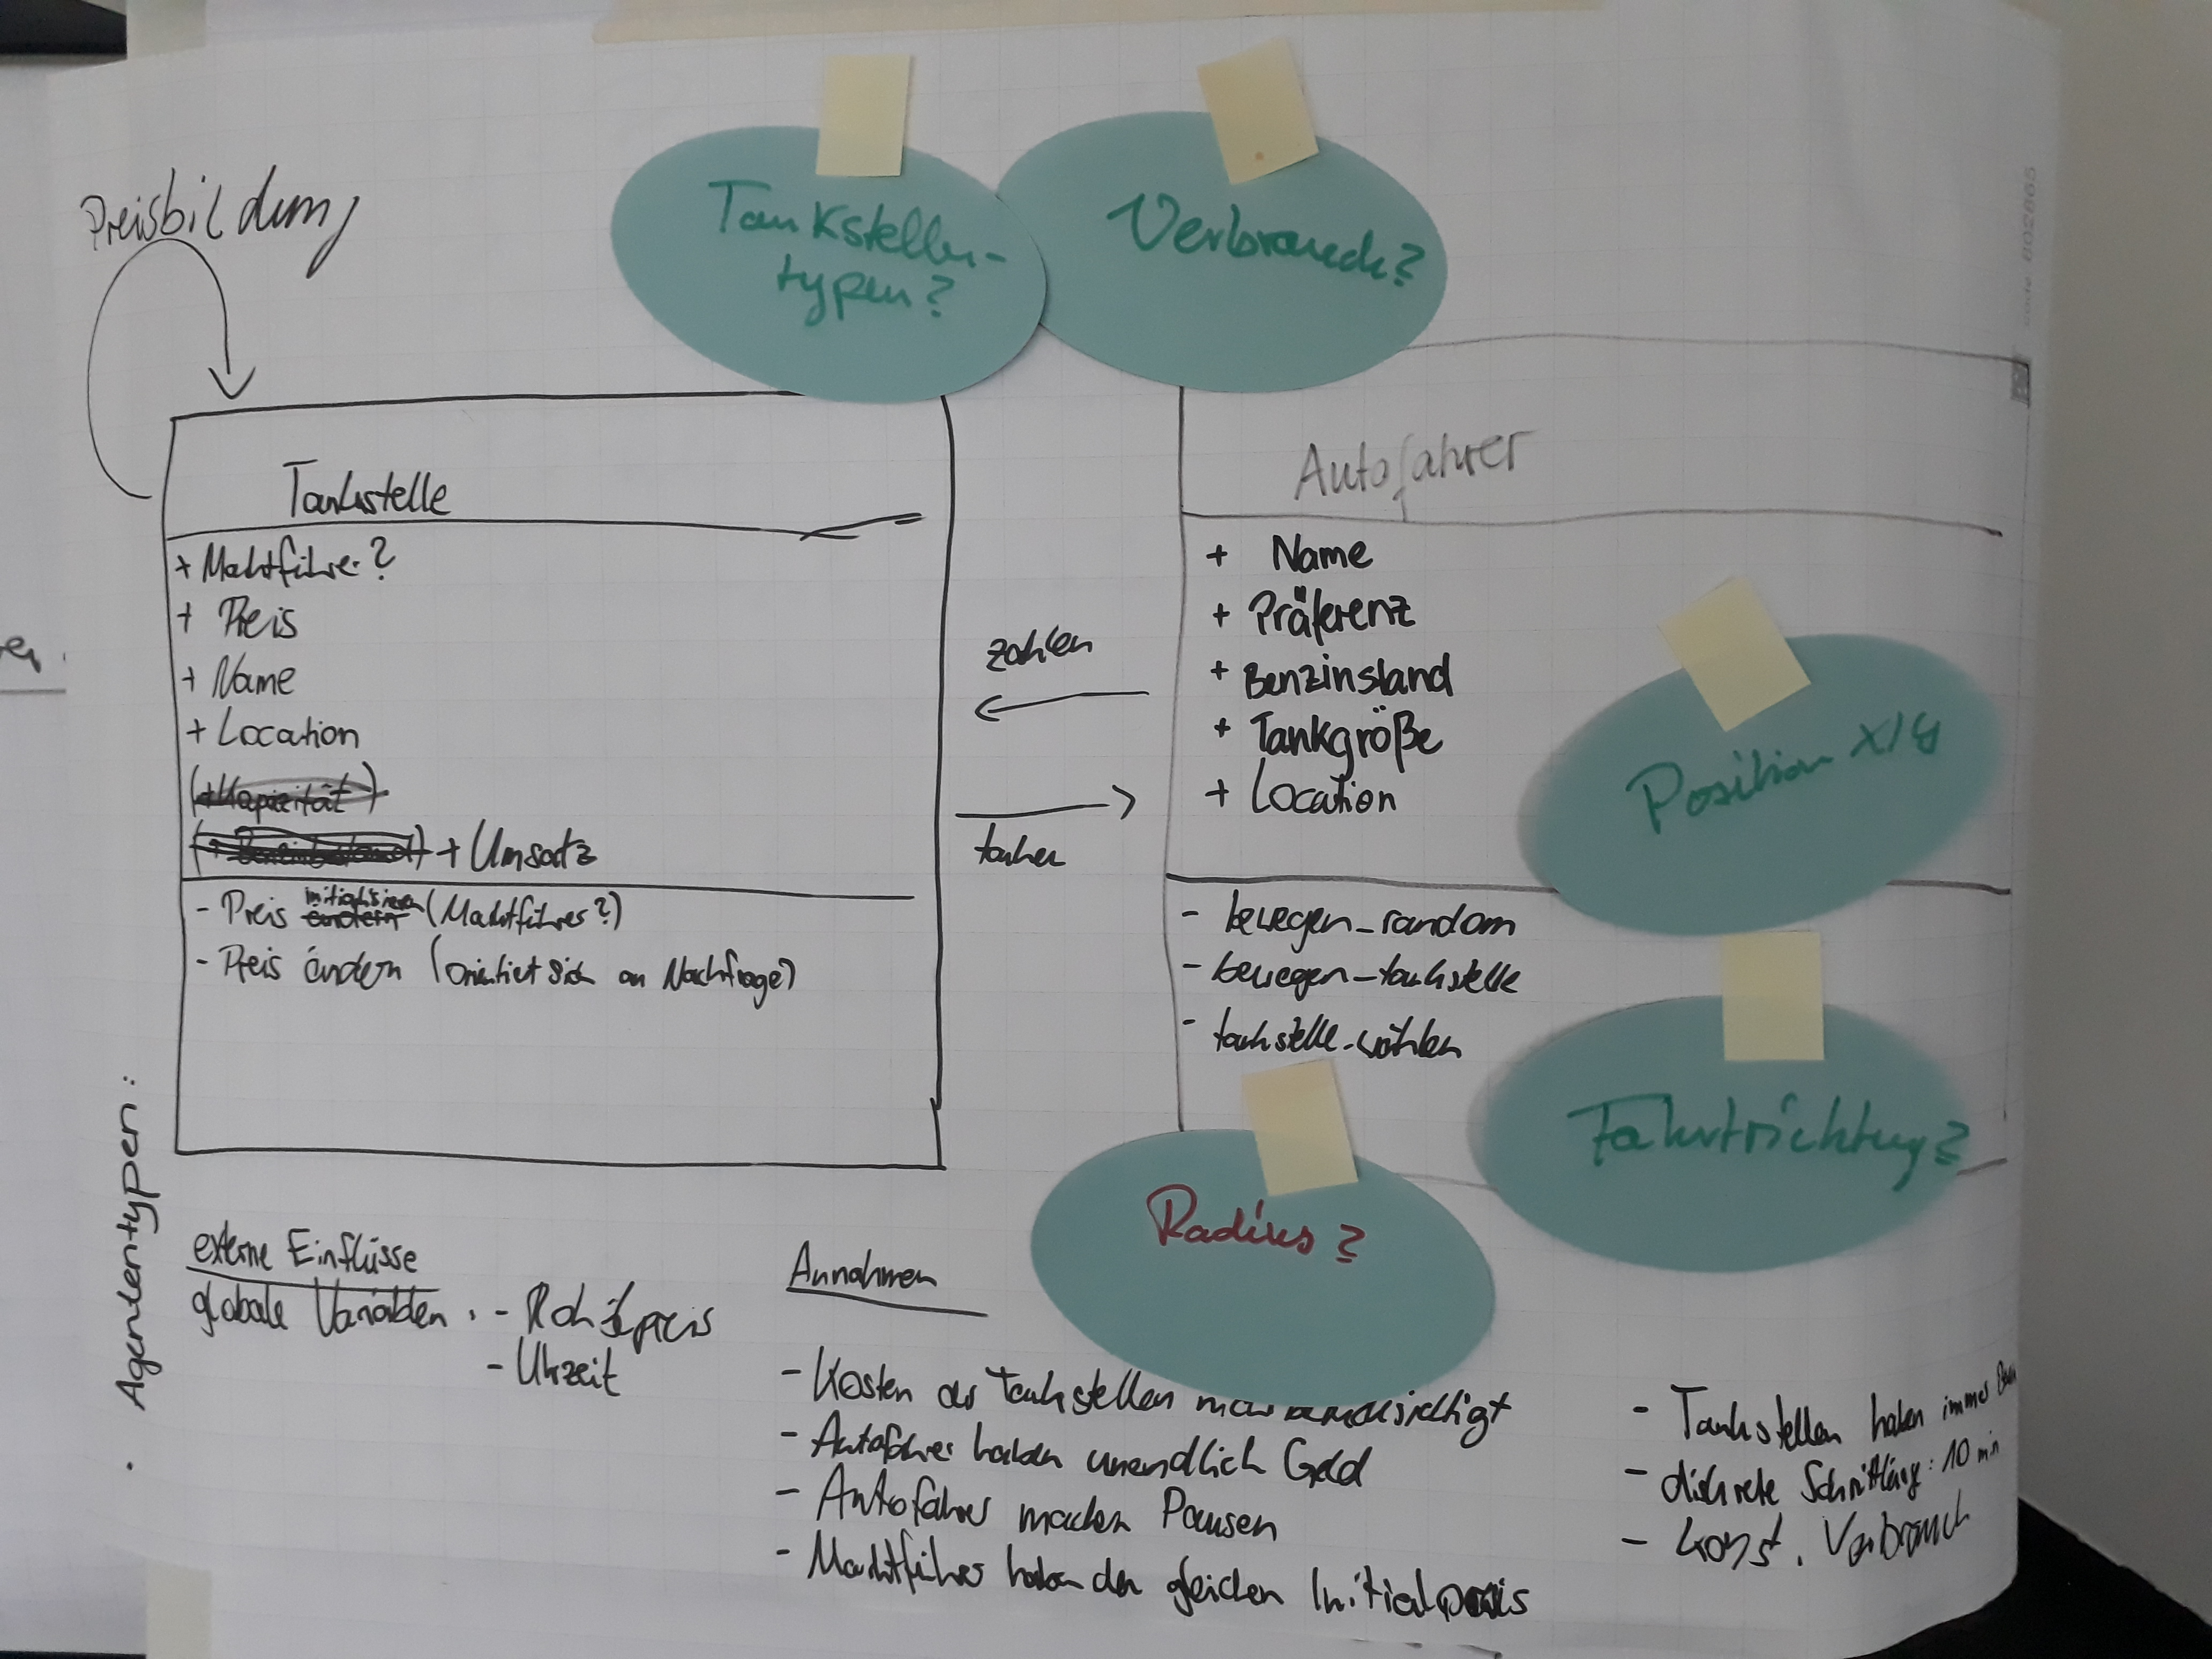 Preisbildung
Tankstellen-
typen?
Verbrauch?
Tankstelle
+ Marktführer?
+ Preis
+ Name
+ Location
(+ Kapazität)
+ Umsatz
- Preis ändern initialisieren (Marktführer?)
- Preis ändern (orientiert sich an Nachfrage)
zahlen
tanken
Autofahrer
+ Name
+ Präferenz
+ Benzinstand
+ Tankgröße
+ Location
Position X/Y
- bewegen_random
- bewegen_tankstelle
- tankstelle_wählen
Fahrtrichtung?
Radius?
Agententypen:
externe Einflüsse
globale Variablen: - Rohölpreis
- Uhrzeit
Annahmen
- Kosten der Tankstellen berücksichtigt
- Autofahrer haben unendlich Geld
- Autofahrer machen Pausen
- Marktführer haben den gleichen Initialpreis
- Tankstellen haben immer
- diskrete Schrittlänge: 10 min
- konst. Verbrauch